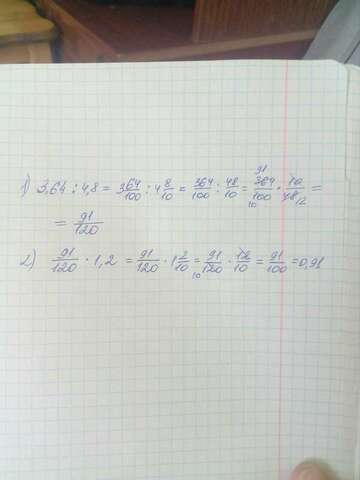 1) 3,64 : 4,8 = 364/100 : 4 8/10 = 364/100 : 48/10 = 91 364/100 10 · 10/48 12 =
= 91/120
2) 91/120 · 1,2 = 91/120 · 1 2/10 = 91/120 10 · 12/10 = 91/100 = 0,91